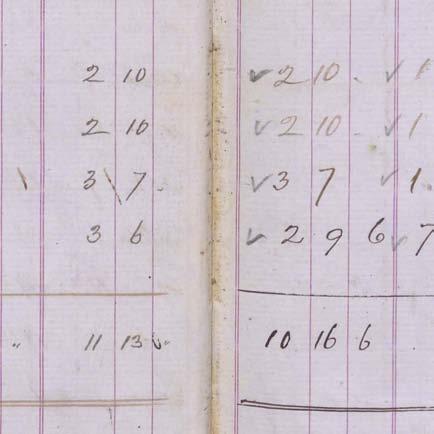 2 10
2 10
3 7
3 6
" 11 13
✓ 2 10 ✓ 1
✓ 2 10 ✓ 1
✓ 3 7 ✓ 1
✓ 2 9 6 ✓ 7
10 16 6